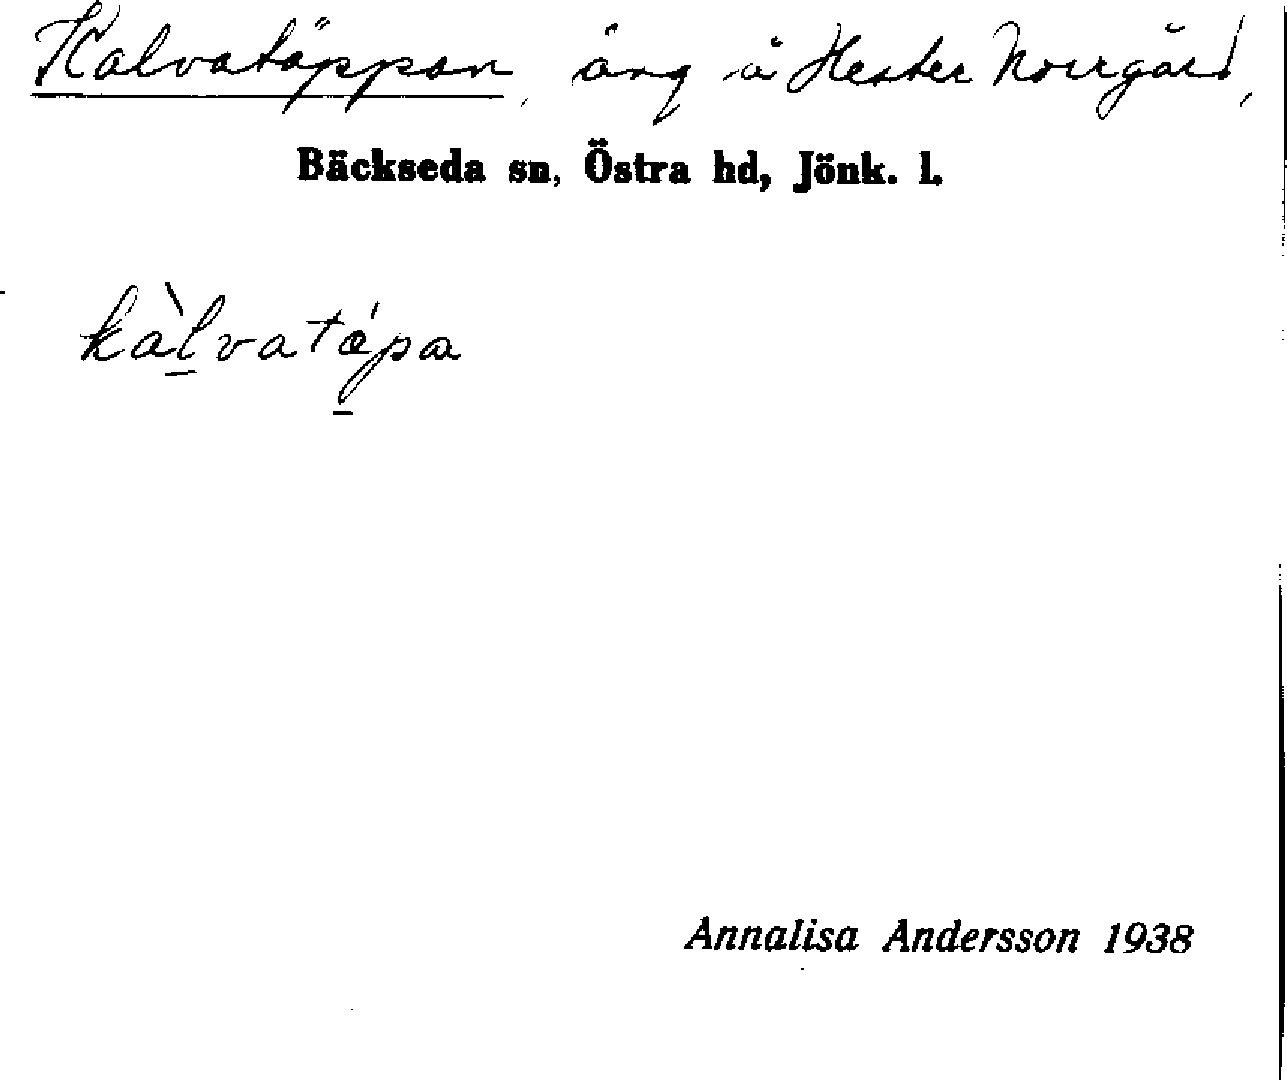 Kalvatäppan, äng å Hester Norrgård,
Bäckseda sn, Östra hd, Jönk. l.
kàlvatǽpa
Annalisa Andersson 1938